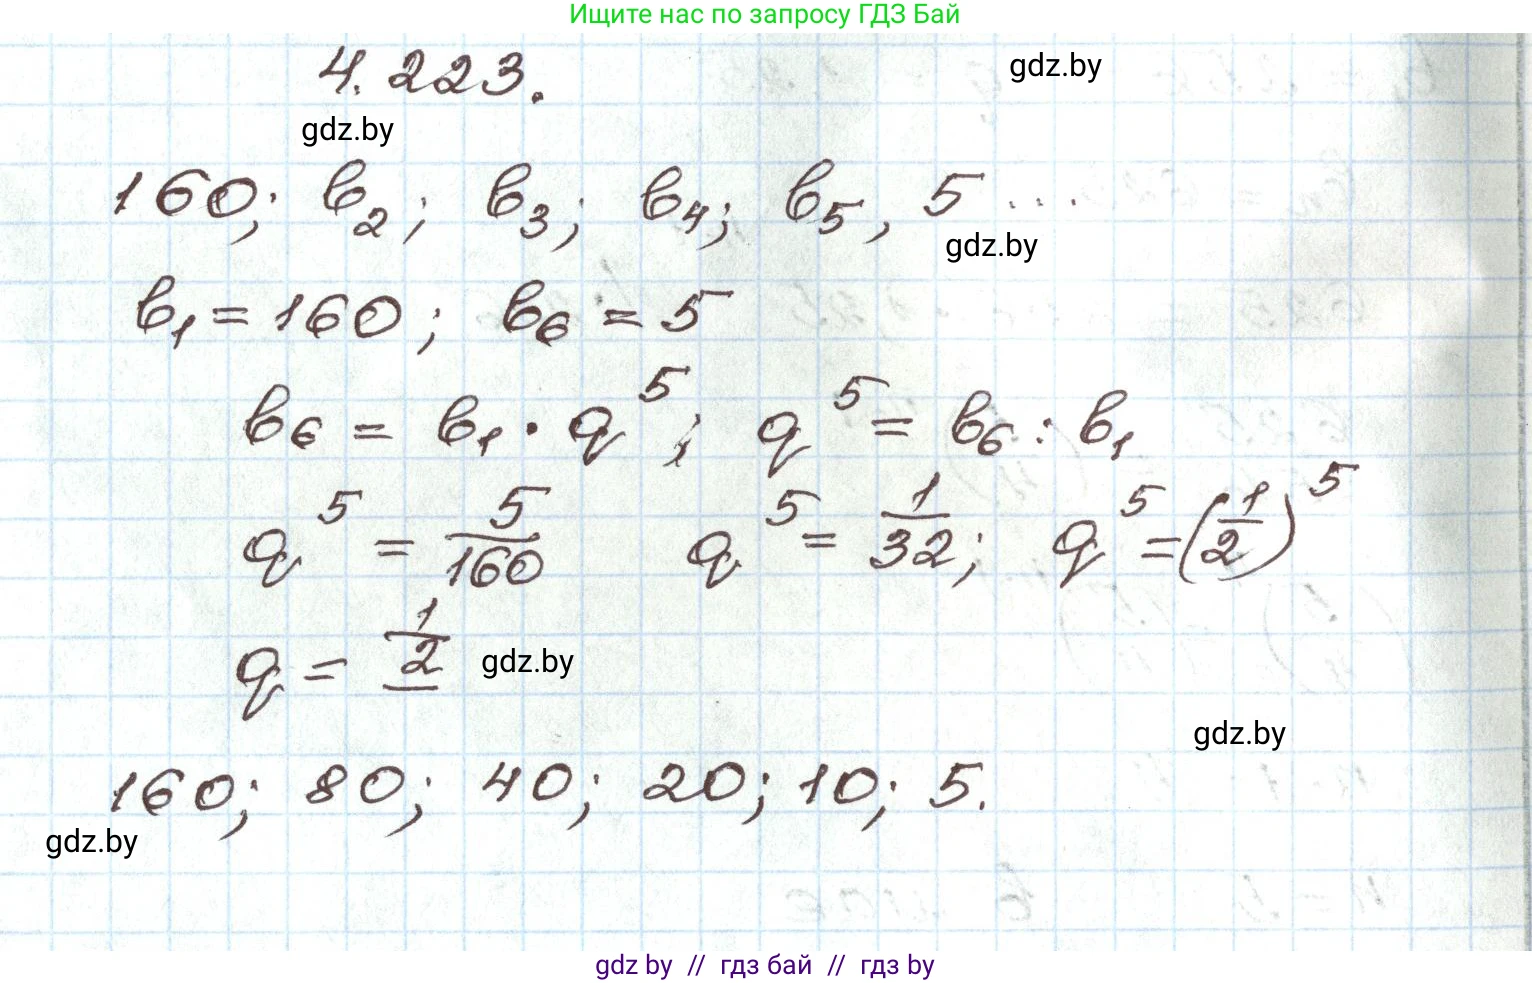 Ищите нас по запросу ГДЗ Бай
4.223.
gdz.by
gdz.by
160; b₂; b₃; b₄; b₅, 5 ...
gdz.by
b₁ = 160; b₆ = 5
b₆ = b₁ · q⁵; q⁵ = b₆ : b₁
q⁵ = 5/160 q⁵ = 1/32; q⁵ = (1/2)⁵
q = 1/2
gdz.by
gdz.by
160; 80; 40; 20; 10; 5.
gdz.by
gdz by // гдз бай // гдз by